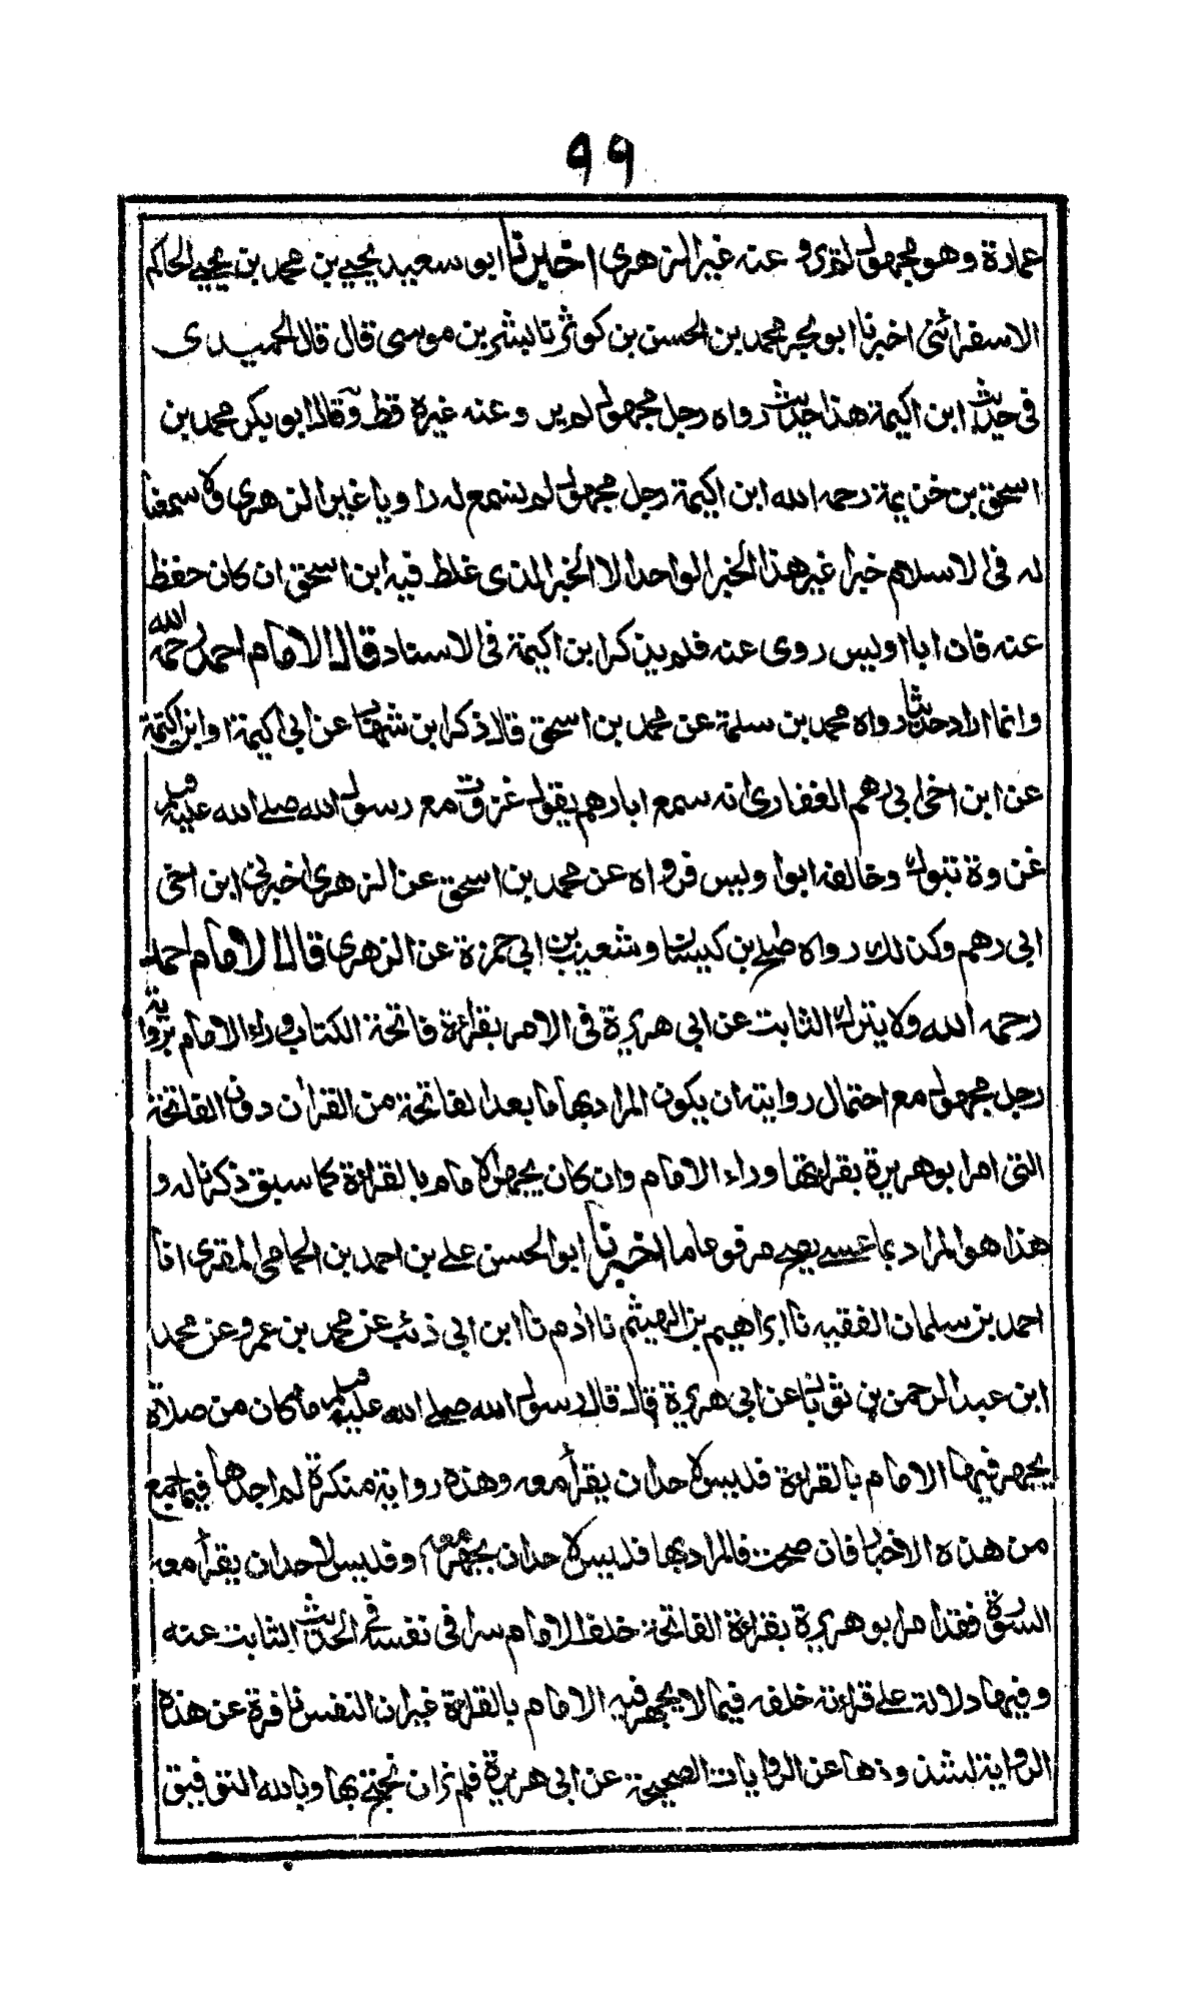 ٩٩
عمارة وهو مجهول لم يرو عنه غير الزهري اخبرنا ابو سعيد يحيى بن محمد بن يحيى الحاكم
الاسفرائني اخبرنا ابو بحر محمد بن الحسن بن كوثر نا بشر بن موسى قال قال الحميدى
فى حديث ابن اكيمة هذا حديث رواه رجل مجهول لم يرو عنه غيره قط وقال ابو بكر محمد بن
اسحق بن خزيمة رحمه الله ابن اكيمة رجل مجهول لم نسمع له راويا غير الزهرى ولا سمعنا
له فى الاسلام خبرا غير هذا الخبر الواحد الا الخبر الذى غلط فيه ابن اسحق ان كان حفظ
عنه فان ابا اويس روى عنه فلم يذكر ابن اكيمة فى الاسناد قال الامام احمد رحمه الله
وانما اراد حديثا رواه محمد بن سلمة عن محمد بن اسحق قال ذكر ابن شهاب عن ابى اكيمة او ابن اكيمة
عن ابن اخى ابى رهم الغفارى انه سمع ابا رهم يقول غزوت مع رسول الله صلى الله عليه وسلم
غزوة تبوك وخالفه ابو اويس فرواه عن محمد بن اسحق عن الزهرى اخبرنى ابن اخى
ابى رهم وكذلك رواه صلح بن كيسان وشعيب بن ابى حمزة عن الزهرى قال الامام احمد
رحمه الله ولا يترك الثابت عن ابى هريرة فى الامر بقراءة فاتحة الكتاب وراء الامام برواية
رجل مجهول مع احتمال روايته ان يكون المراد بها ما بعد الفاتحة من القرآن دون الفاتحة
التى امر ابو هريرة بقراءتها وراء الامام وان كان يجهر الامام بالقراءة كما سبق ذكرنا له و
هذا هو المراد بما عسى يصح مرفوعا ما اخبرنا ابو الحسن على بن احمد بن الحمامى المقرى انا
احمد بن سلمان الفقيه نا ابراهيم بن الهيثم نا ادم نا ابن ابى ذئب عن محمد بن عمرو عن محمد
ابن عبد الرحمن بن ثوبان عن ابى هريرة قال قال رسول الله صلى الله عليه وسلم ما كان من صلاة
يجهر فيها الامام بالقراءة فليس لاحد ان يقرأ معه وهذه رواية منكرة لم اجدها فيما جمع
من هذه الاخبار فان صحت فالمراد بها فليس لاحد ان يجهر معه او فليس لاحد ان يقرأ معه
السورة فقد امر ابو هريرة بقراءة الفاتحة خلف الامام سرا فى نفسه فى الحديث الثابت عنه
وفيها دلالة على قراءته خلفه فيما لا يجهر فيه الامام بالقراءة غير ان النفس نافرة عن هذه
الرواية لشذوذها عن الروايات الصحيحة عن ابى هريرة فلم نر ان نحتج بها وبالله التوفيق